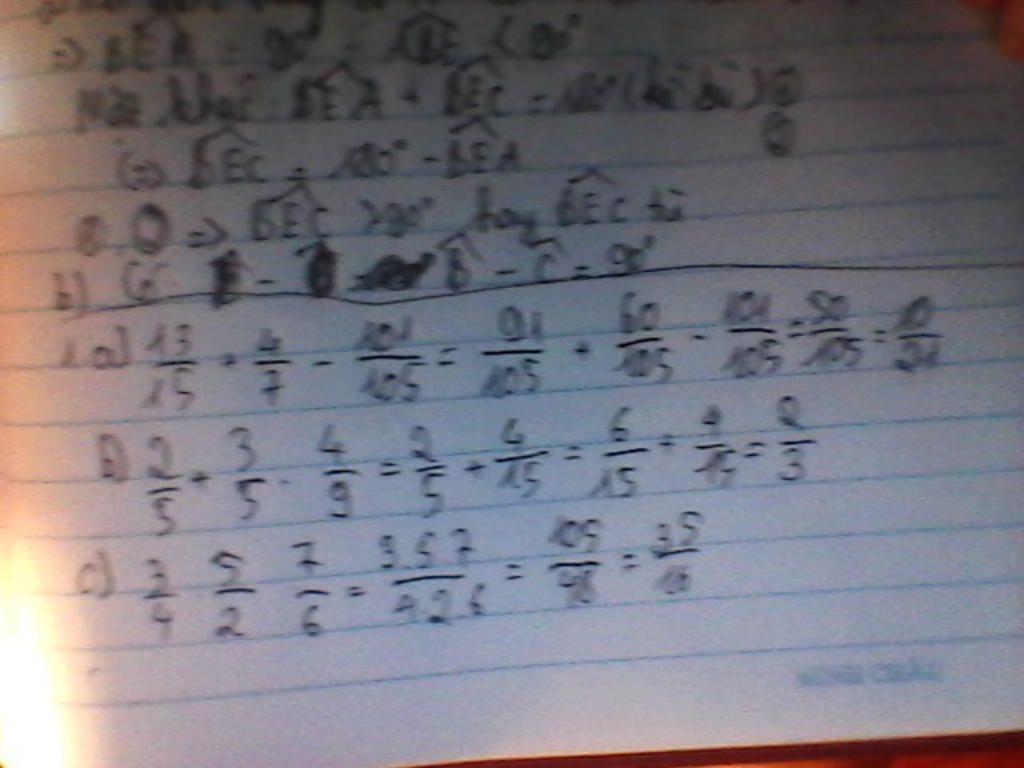 => BEA = 90° - ABE < 90°
Mặt khác BEA + BEC = 180° (kề bù) ②
(=) BEC = 180° - BEA
① ② => BEC > 90° hay BEC tù
b) Có B - C = 90°
1.a) 13/15 + 4/7 - 101/105 = 91/105 + 60/105 - 101/105 = 50/105 = 10/21
b) 2/5 + 3/5 . 4/9 = 2/5 + 4/15 = 6/15 + 4/15 = 2/3
c) 3/4 5/2 7/6 = 3.5.7/4.2.6 = 105/48 = 35/16